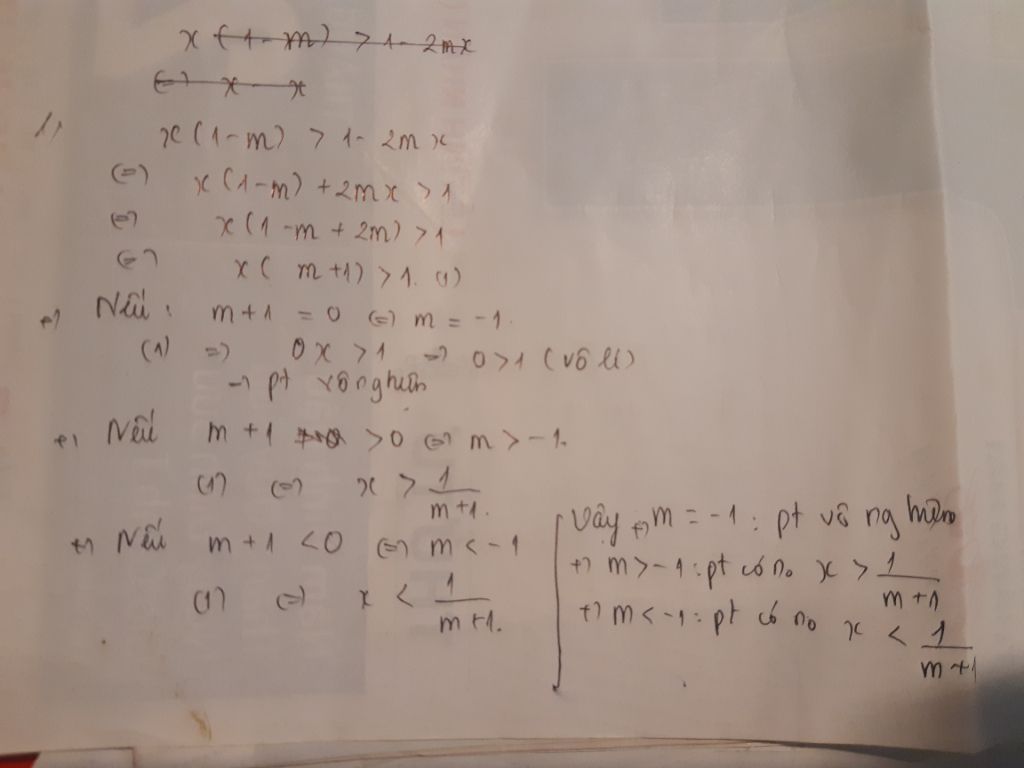 x (1-m) > 1-2mx
(=) x - x
1,
x(1-m) > 1-2mx
(=) x(1-m) + 2mx > 1
(=) x(1-m+2m) > 1
(=) x( m+1) > 1. (1)
+) Nếu : m+1 = 0 (=) m = -1.
(1) => 0x > 1 => 0 > 1 (vô lí)
-> pt vô nghiệm
+) Nếu m+1 > 0 (=) m > -1.
(1) (=) x > 1/(m+1).
+) Nếu m+1 < 0 (=) m < -1
(1) (=) x < 1/(m+1).
Vậy +) m = -1 : pt vô nghiệm
+) m > -1 : pt có no x > 1/(m+1)
+) m < -1 : pt có no x < 1/(m+1)